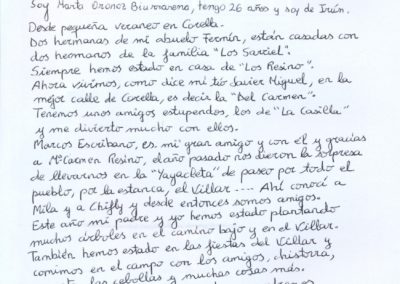 Soy Marta Oronoz Biurrarena, tengo 26 años y soy de Irún.
Desde pequeña veraneo en Corella.
Dos hermanas de mi abuelo Fermín, están casadas con
dos heomanos de la familia "Los Sarciel".
Siempre hemos estado en casa de "Los Resino".
Ahora vivimos, como dice mi tío Javier Miguel, en la
mejor calle de Corella, es decir la "Del Carmen".
Tenemos unos amigos estupendos, los de "La Casilla"
y me divierto mucho con ellos.
Marcos Escribano, es mi gran amigo y con él y gracias
a Mª Carmen Resino, el año pasado nos dieron la sorpresa
de llevarnos en la "Yayacleta" de paseo por todo el
pueblo, por la estanca, el Villar .... Ahí conocí a
Mila y a Chifly y desde entonces somos amigos.
Este año mi padre y yo hemos estado plantando
muchos árboles en el camino bajo y en el Villar.
También hemos estado en las fiestas del Villar y
comimos en el campo con los amigos, chistorra,
las cebollas y muchas cosas más.